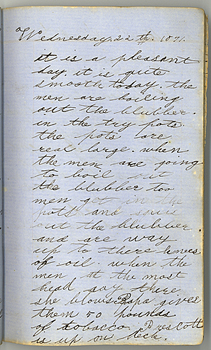 Wednesday, 22 th, 1871.
it is a pleasant
day. it is quite
smooth today. the
men are boiling
out the blubber.
in the try pots
the pots are
real large. when
the men are going
to boil out
the blubber too
men get in the
pots and
out the blubber
and are way
up to there knees
of oil. when the
men at the mast
head say there
she blows Papa gives
them 50 pounds
of tobacco. Prescott
is up on deck.